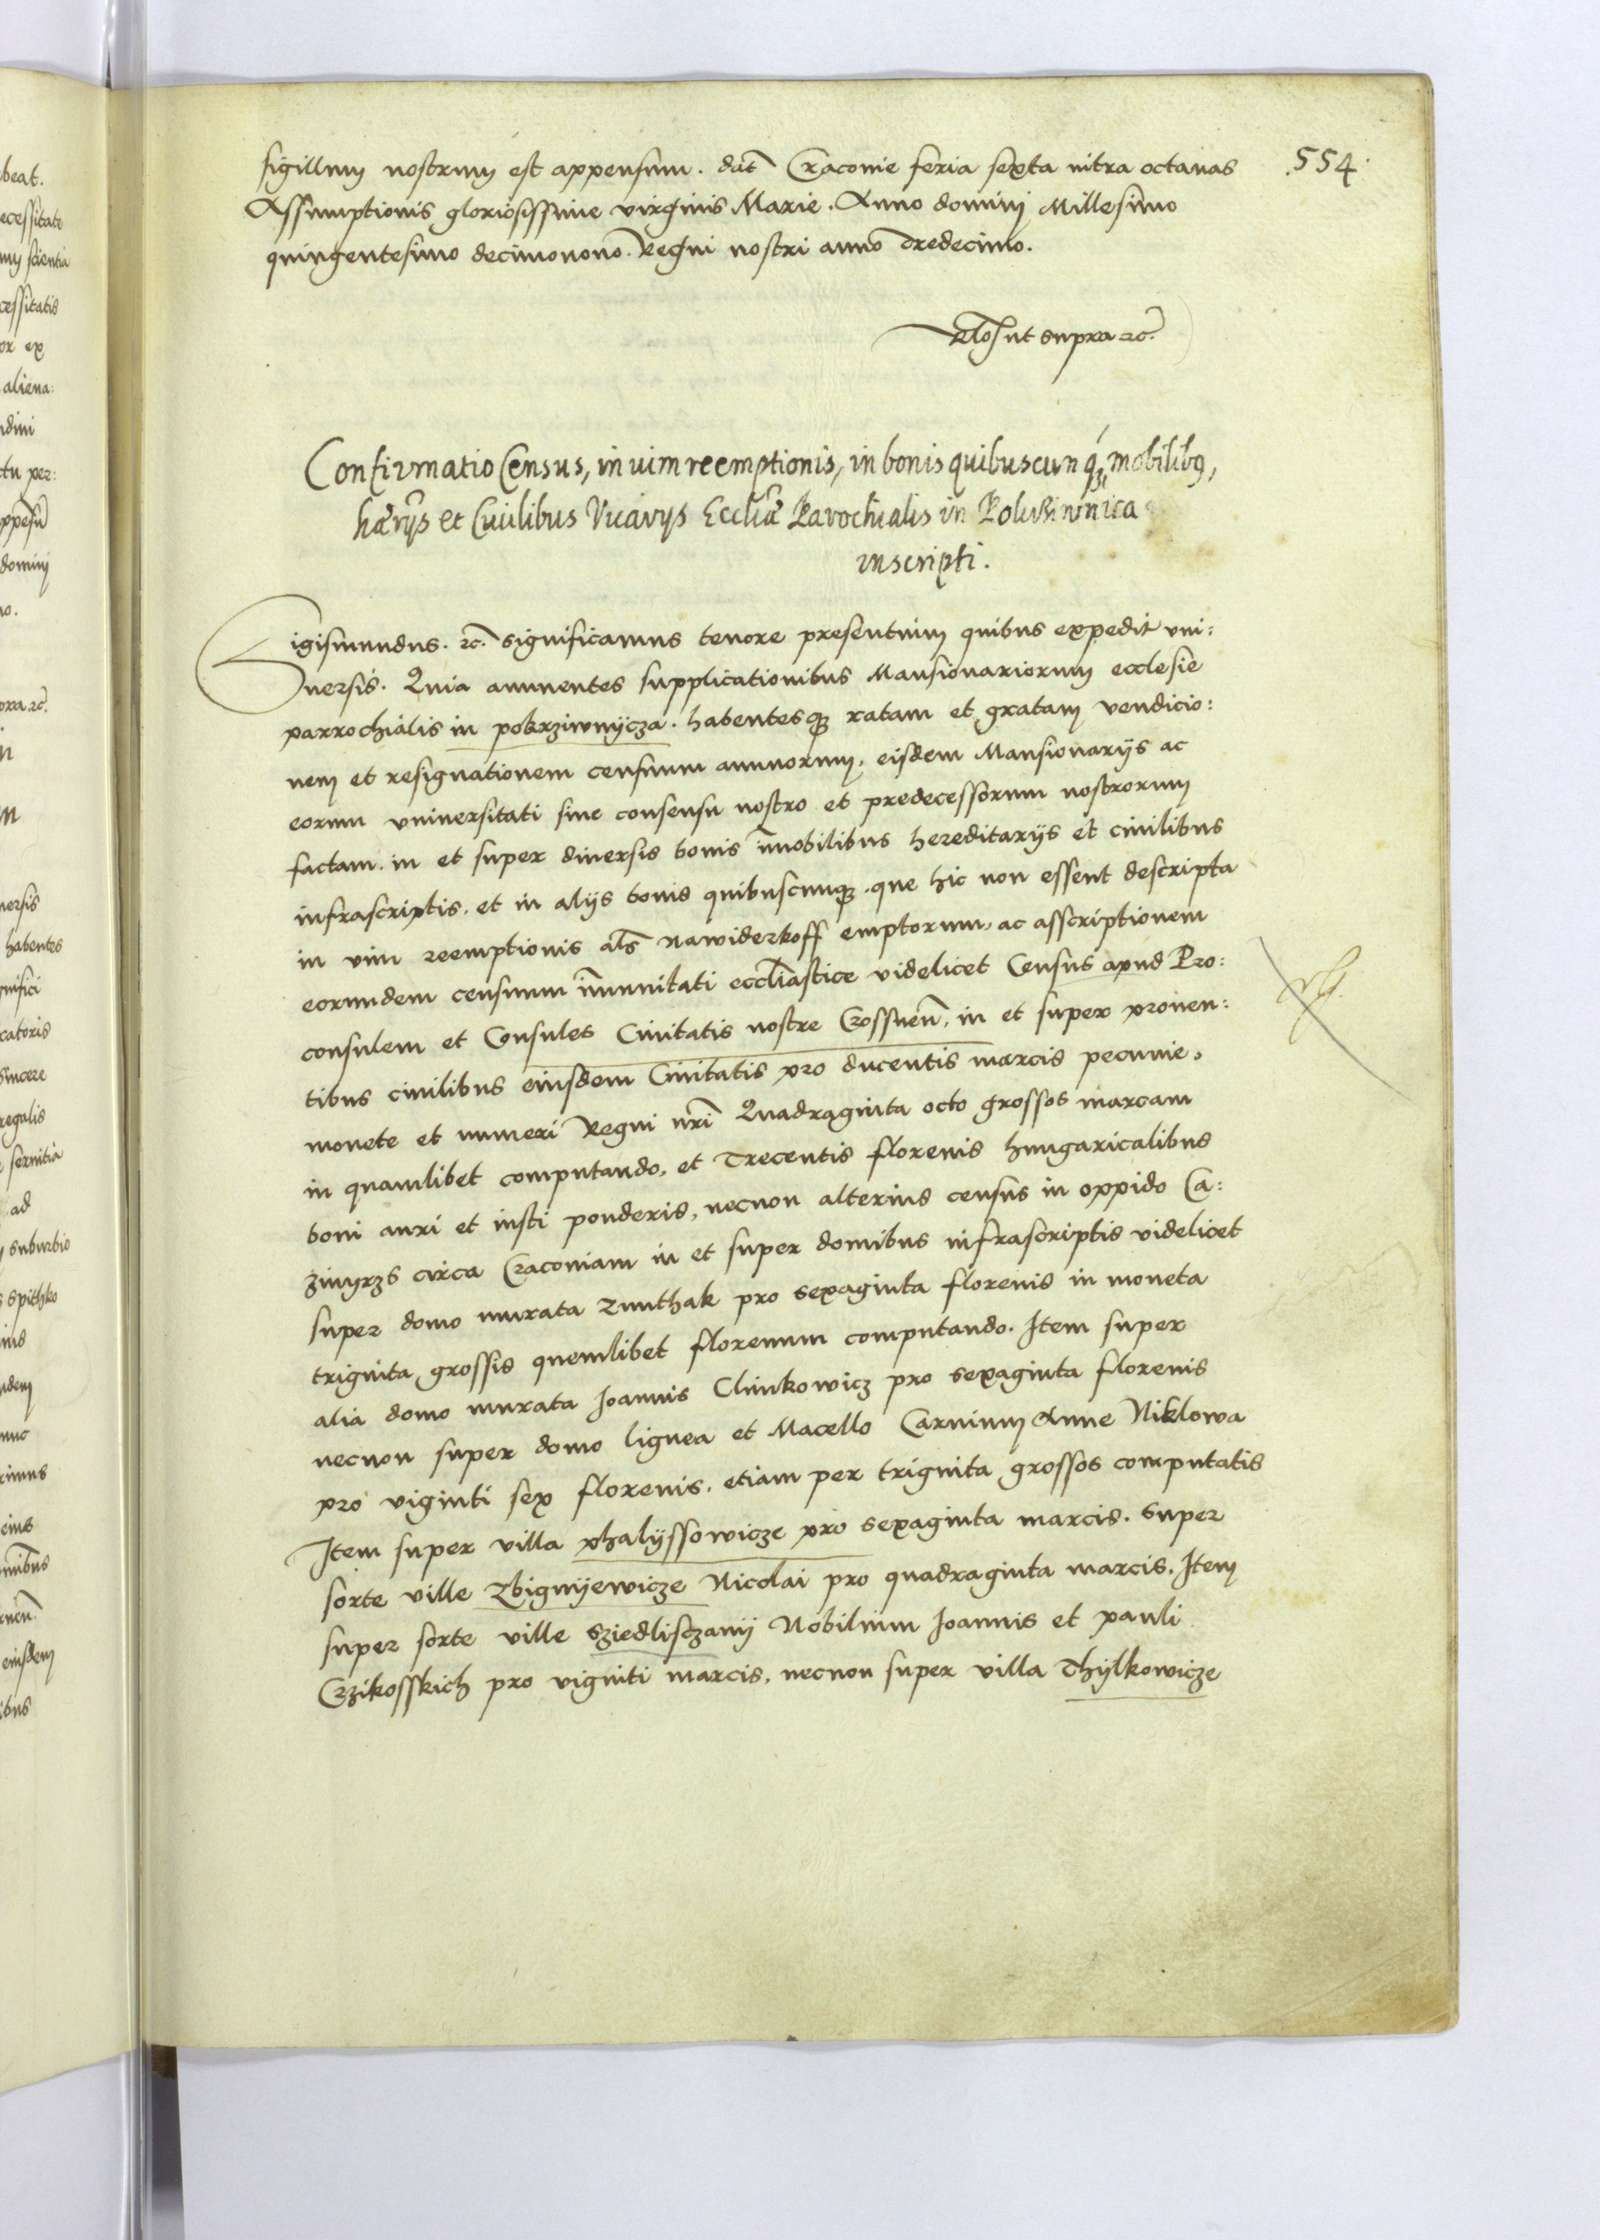 554
sigillum nostrum est appensum. dat̄ Cracovie feria sexta intra octavas
Assumptionis gloriosissime virginis Marie. Anno domini Millesimo
quingentesimo decimonono. Regni nostri anno tredecimo.
Relō ut supra ꝛc̄.
Confirmatio Census, in vim reemptionis, in bonis quibuscunq́ꝫ, mobilibꝯ,
hær̃ijs et Civilibus Vicarijs Eccliæ̃ Parochialis in Pokrzivnica
inscripti.
Sigismundus. ꝛc̄. significamus tenore presentium quibus expedit uni:
versis. Quia annuentes supplicationibus Mansionariorum ecclesie
parrochialis in pokrziwnycza. habentesqꝫ ratam et gratam vendicio:
nem et resignationem censuum annuorum, eisdem Mansionarijs ac
eorum universitati sine consensu nostro et predecessorum nostrorum
factam. in et super diversis bonis īmobilibus hereditarijs et civilibus
infrascriptis. et in alijs bonis quibuscunqꝫ. que hic non essent descripta
in vim reemptionis als̄ nawiderkoff emptorum, ac asscriptionem
eorundem censuum im̄unitati eccl̄iastice videlicet Census apud Pro:
consulem et Consules Civitatis nostre Crossneñ. in et super proven:
tibus civilibus eiusdem Civitatis pro ducentis marcis pecunie,
monete et numeri Regni nr̄i Quadraginta octo grossos marcam
in quamlibet computando, et Trecentis florenis hungaricalibus
boni auri et iusti ponderis, necnon alterius census in oppido Ca:
zimyrzs circa Cracoviam in et super domibus infrascriptis videlicet
super domo murata Zunthak pro sexaginta florenis in moneta
triginta grossis quemlibet florenum computando. Item super
alia domo murata Joannis Clinkowicz pro sexaginta florenis
necnon super domo lignea et Macello Carnium Anne Niklowa
pro viginti sex florenis, etiam per triginta grossos computatis
Item super villa phalyssowicze pro sexaginta marcis. super
sorte ville Zbignyewicze Nicolai pro quadraginta marcis. Item
super sorte ville Sziedlisczany Nobilium Joannis et pauli
Czikosskich pro viginti marcis, necnon super villa Thylkowicze